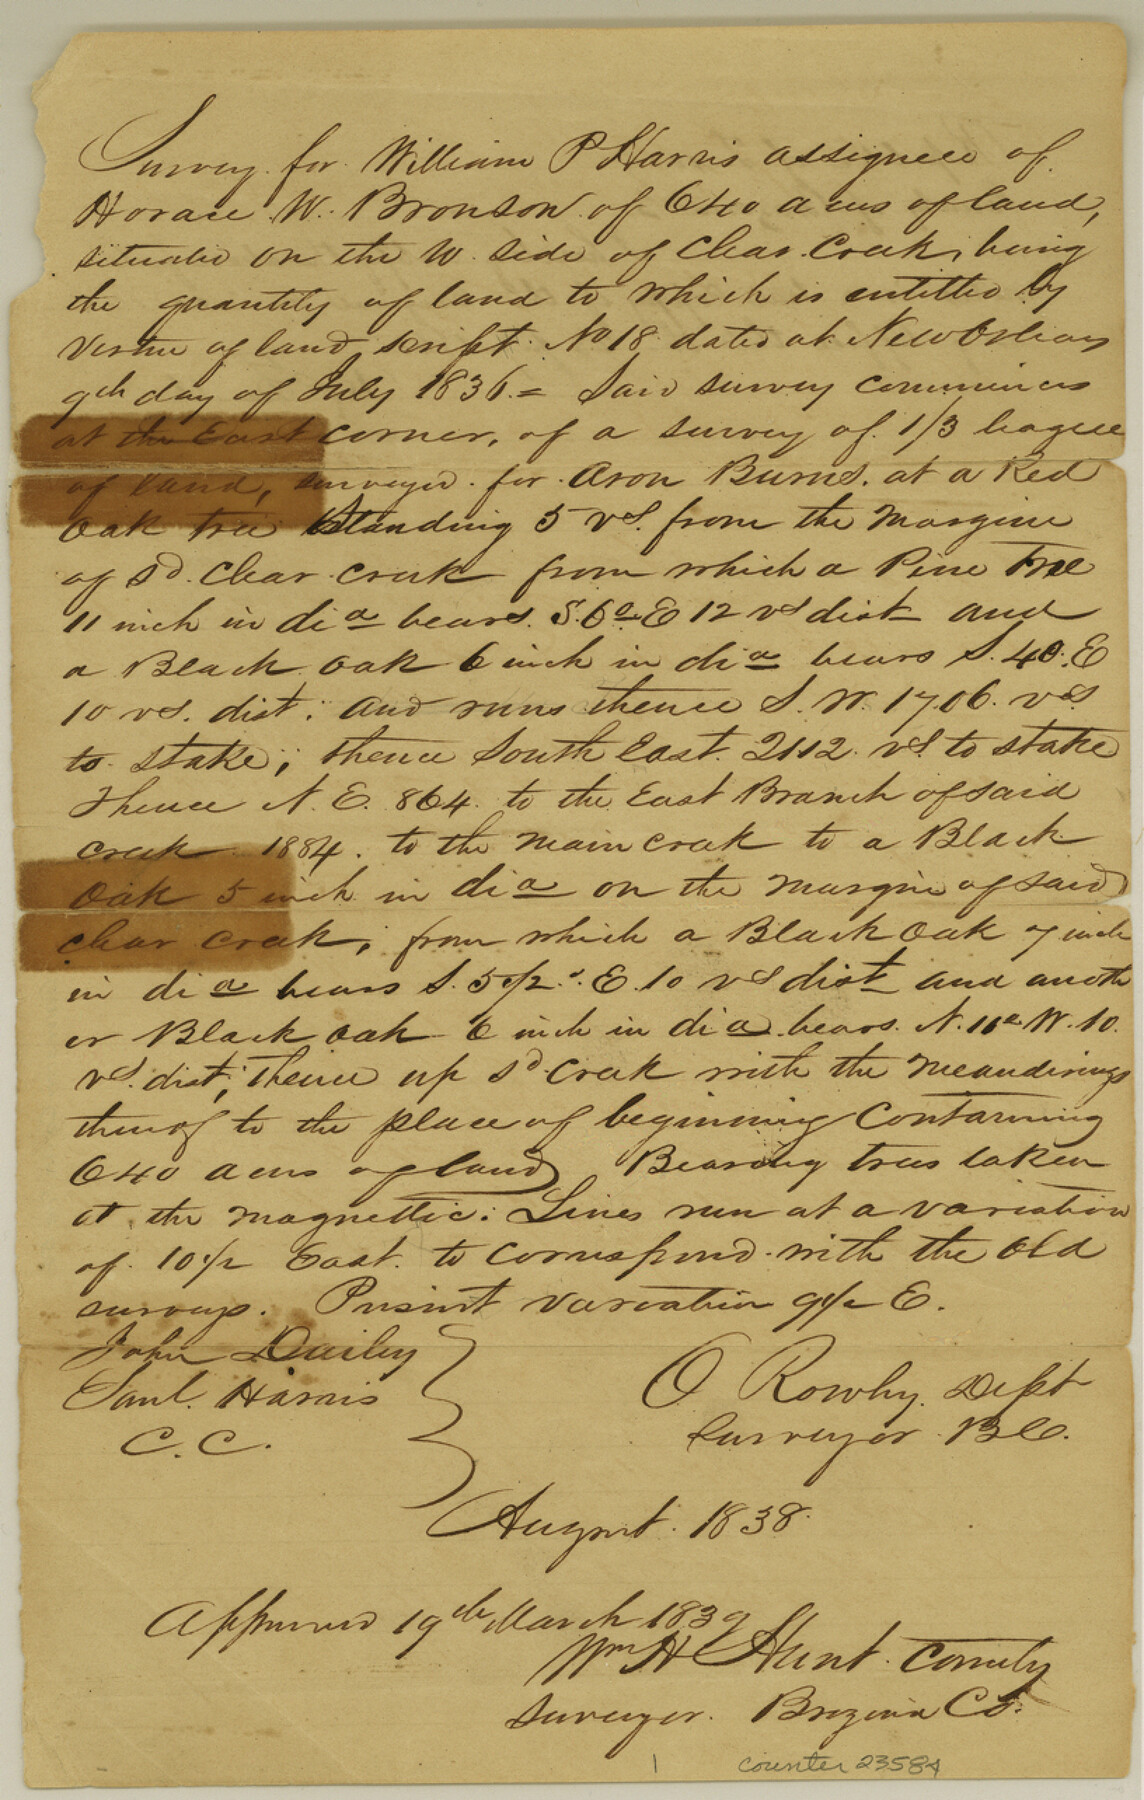 Survey for William P Harris assignee of
Horace W. Bronson of 640 acres of land,
situate on the W side of Clear Creek, being
the quantity of land to which is entitled by
virtue of land script No 18 dated at New Orleans
9th day of July 1836 = Said survey commences
at the East corner, of a survey of 1/3 league
of land, surveyed for Aron Burns. at a Red
Oak tree Standing 5 vs. from the margine
of sd. Clear creek from which a Pine Tree
11 inch in dia bears S. 60 E 12 vs dist and
a Black Oak 6 inch in dia bears S. 40. E
10 vs. dist; and runs thence S. W. 1706. vs
to stake; thence South East. 2112. vs. to stake
Thence N. E. 864. to the East Branch of said
creek 1884. to the main creek to a Black
Oak 5 inch in dia on the margin of said
clear creek, from which a Black Oak 7 inch
in dia bears S. 5 1/2 E. 10 vs dist and anoth
er Black oak 6 inch in dia bears. N. 11 W. 10.
vs. dist; thence up sd creek with the meanderings
thereof to the place of beginning Containing
640 acres of land Bearing trees taken
at the magnettic: Lines run at a variation
of 10 1/2 East. to correspond with the old
surveys. Present variation 9 1/2 E.
John Dailey
Saml. Harris
C. C.
O Rowley Dept
Surveyor B C.
August. 1838.
Approved 19th March 1839
Wm H Hunt County
surveyor. Brazoria Co.
1 counter 23584